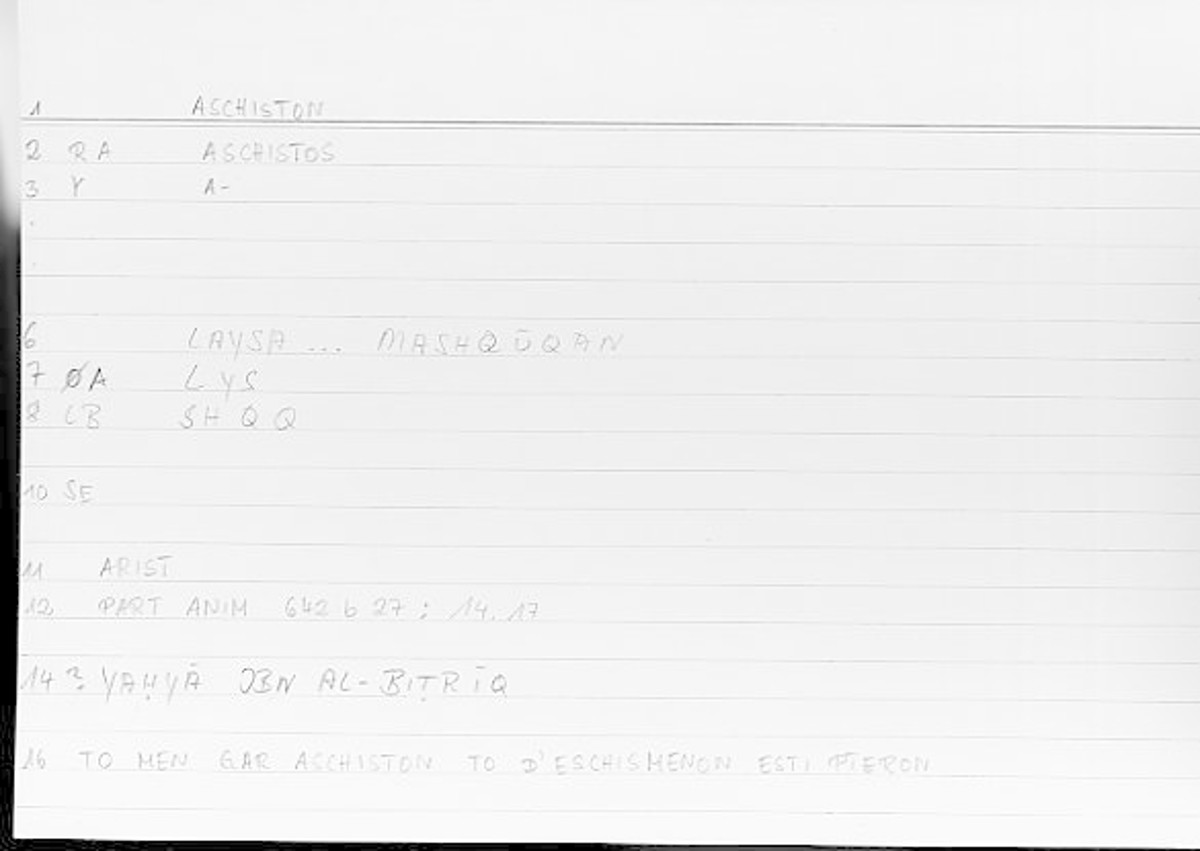 1 ASCHISTON
2 RA ASCHISTOS
3 Y A-
6 LAYSA ... MASHQŪQAN
7 ØA LYS
8 CB SHQQ
10 SE
11 ARIST
12 PART ANIM 642 b 27 : 14.17
14 ? YAḤYĀ IBN AL-BIṬRĪQ
16 TO MEN GAR ASCHISTON TO D'ESCHISMENON ESTI PTERON